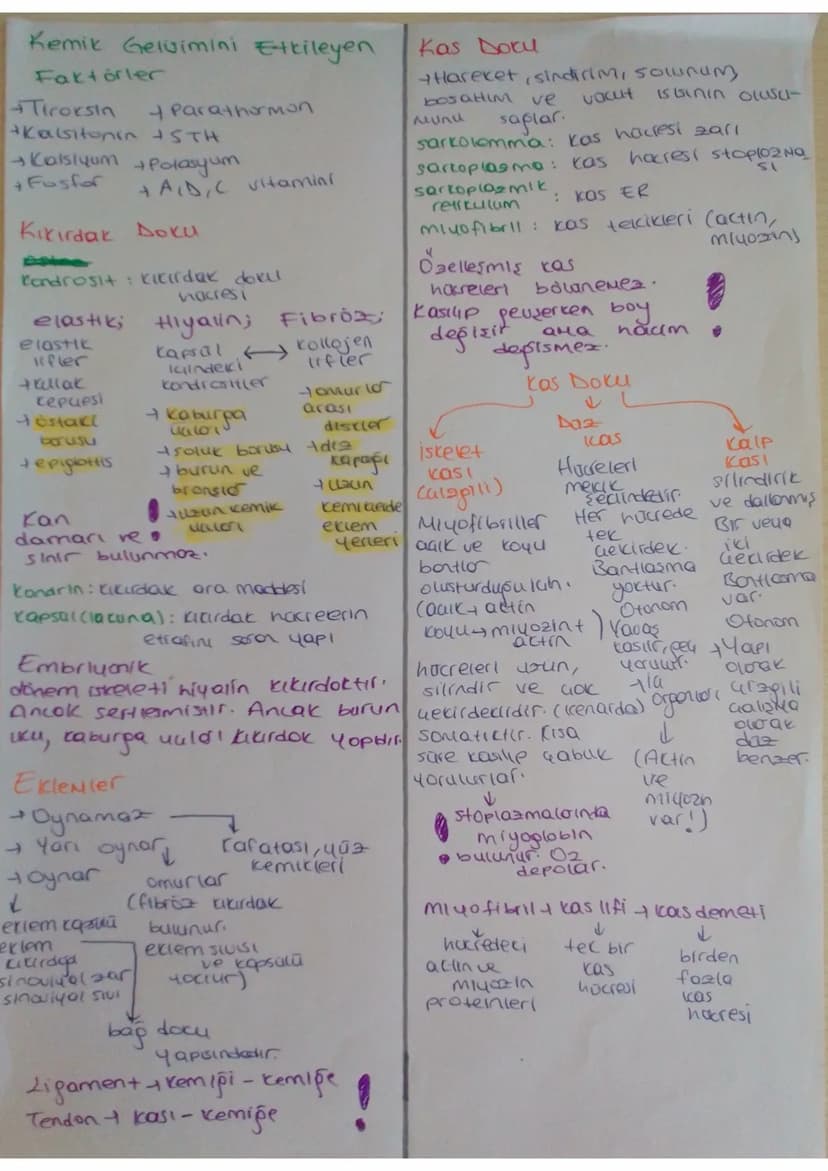 Kemik Gelişimini Etkileyen
Faktörler
→Tiroksin →Parathormon
→Kalsitonin →STH
→Kalsiyum →Potasyum
→Fosfor →A,D,C vitamini
Kıkırdak Doku
Kondrosit: Kıkırdak doku
hücresi
elastik;
elastik
lifler
→kulak
kepçesi
→östaki
borusu
→epiglottis
Hiyalin;
kapsül
içindeki
kondrositler
→kaburga
uçları
→soluk borusu
→burun ve
bronşlar
→uzun kemik
uçları
Fibröz;
↔ kollojen
lifler
→omurlar
arası
diskler
→diz
kapağı
→uzun
kemiklerde
eklem
yerleri
Kan
damarı ve
sinir bulunmaz.
!
Kondrin: kıkırdak ara maddesi
Kapsül (lacuna): kıkırdak hücrelerin
etrafını saran yapı
Embriyonik
dönem iskeleti hiyalin kıkırdaktır.
Ancak sertleşmiştir. Ancak burun
ucu, kaburga ucu kıkırdak yapıdır.
Eklemler
→Oynamaz → Kafatası, yüz
kemikleri
→Yarı oynar ↓
omurlar
(fibröz kıkırdak
bulunur.
eklem sıvısı
ve kapsülü
yoktur)
→Oynar
↓
eklem kapsülü
eklem
kıkırdağı
sinoviyal zar
sinoviyal sıvı
bağ doku
yapısındadır.
Ligament → kemiği - kemiğe
Tendon → kası - kemiğe
!
Kas Doku
→Hareket, sindirim, solunum,
boşaltım ve vücut ısısının oluşu-
munu sağlar.
sarkolemma: kas hücresi zarı
sarkoplazma: kas hücresi stoplazma
sı
sarkoplazmik
retikulum : kas ER
miyofibril: kas telcikleri (actin,
miyozin)
Özelleşmiş kas
hücreleri bölünemez.
Kasılıp gevşerken boy
değişir ama hacim
değişmez.
!
Kas Doku
iskelet
kası
(çizgili)
Miyofibriller
açık ve koyu
bantlar
oluşturduğu için.
(açık→actin
koyu→miyozin+
actin)
hücreleri uzun,
silindir ve çok
çekirdeklidir. (kenarda)
somatiktir. Kısa
süre kasılıp çabuk
yorulurlar.
↓
stoplazmalarında
miyoglobin
bulunur. O2
depolar.
!
Düz
kas
Hücreleri
mekik
şeklindedir.
Her hücrede
tek
çekirdek.
Bantlaşma
yoktur.
Otonom
Yavaş
kasılır, geç
yorulur.
→İç
organlar
↓
(Actin
ve
miyozin
var!)
Kalp
Kası
silindirik
ve dallanmış
Bir veya
iki
çekirdek
Bantlaşma
var.
Otonom
→Yapı
olarak
çizgili
çalışma
olarak
düz
benzer.
miyofibril → kas lifi → kas demeti
↓
hücredeki
actin ve
miyozin
proteinleri
↓
tek bir
kas
hücresi
↓
birden
fazla
kas
hücresi